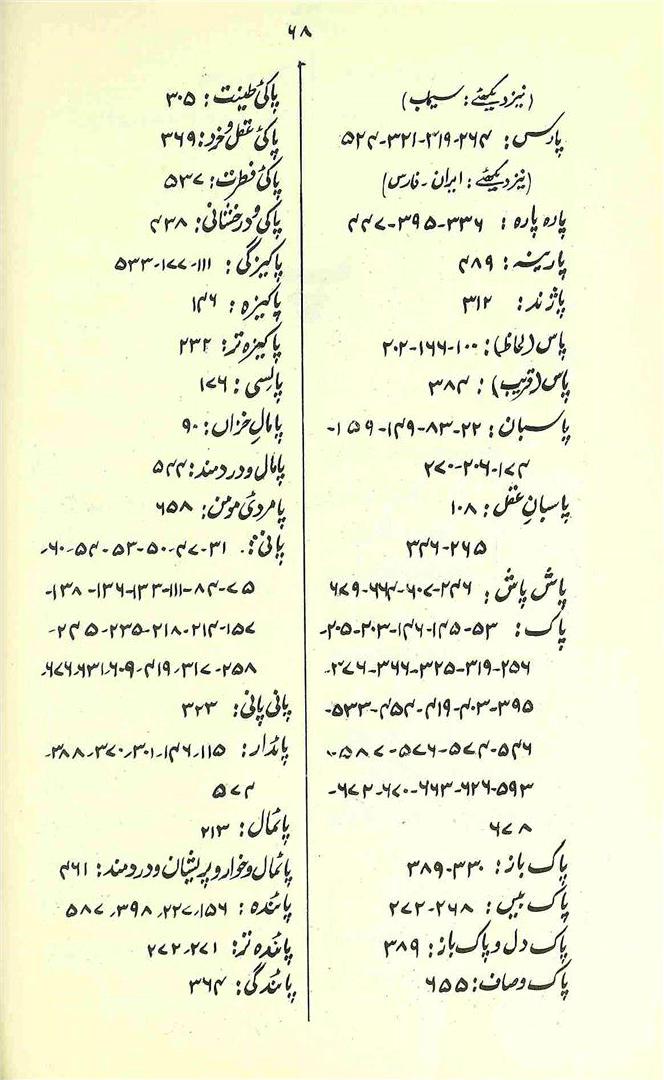 ۶۸
(نیز دیکھئے: سیماب)
پارس: ۲۶۴-۳۱۹-۳۲۱-۵۲۴
(نیز دیکھئے: ایران-فارس)
پارہ پارہ: ۳۳۶-۳۹۵-۴۴۷
پارینہ: ۴۸۹
پاژند: ۳۱۲
پاس (لحاظ): ۱۰۰-۱۶۶-۲۰۲
پاس (قریب): ۳۸۴
پاسبان: ۲۲-۸۳-۱۴۹-۱۵۹-
۱۷۴-۲۰۶-۲۷۰
پاسبانِ عقل: ۱۰۸
۲۶۵-۳۴۶
پاش پاش: ۲۴۶-۶۰۷-۶۶۴-۶۷۹
پاک: ۵۳-۱۴۵-۱۴۶-۲۰۳-۲۰۵-
۲۵۶-۳۱۹-۳۲۵-۳۶۶-۳۷۶-
۳۹۵-۴۰۳-۴۱۹-۴۵۴-۵۳۳-
۵۴۶-۵۷۴-۵۷۶-۵۸۷-
۵۹۳-۶۲۶-۶۶۳-۶۷۰-۶۷۲-
۶۷۸
پاک باز: ۳۳۰-۳۸۹
پاک بیں: ۲۶۸-۲۷۲
پاک دل و پاک باز: ۳۸۹
پاک و صاف: ۶۵۵
پاکئ طینت: ۳۰۵
پاکئ عقل و خرد: ۳۶۹
پاکئ فطرت: ۵۳۷
پاکی و درخشانی: ۴۳۸
پاکیزگی: ۱۱۱-۱۷۷-۵۳۳
پاکیزہ: ۱۴۶
پاکیزہ تر: ۲۳۲
پالسی: ۱۷۶
پامالِ خزاں: ۹۰
پامال و دردمند: ۵۴۴
پامردئ مومن: ۶۵۸
پانی: ۳۱-۴۷-۵۰-۵۳-۵۴-۶۰-
۷۵-۸۴-۱۱۱-۱۳۳-۱۳۶-۱۳۸-
۱۵۷-۲۱۴-۲۱۸-۲۳۵-۲۴۵-
۲۵۸-۳۱۷-۴۱۹-۶۰۹-۶۳۱-۶۷۶
پانی پانی: ۳۲۳
پائدار: ۱۱۵-۱۴۶-۳۰۱-۳۷۰-۳۸۸-
۵۷۴
پائمال: ۲۱۳
پائمال و خوار و پریشان و دردمند: ۴۶۱
پائندہ: ۱۵۶-۲۲۷-۳۹۸-۵۸۷
پائندہ تر: ۲۷۱-۲۷۲
پائندگی: ۳۶۴